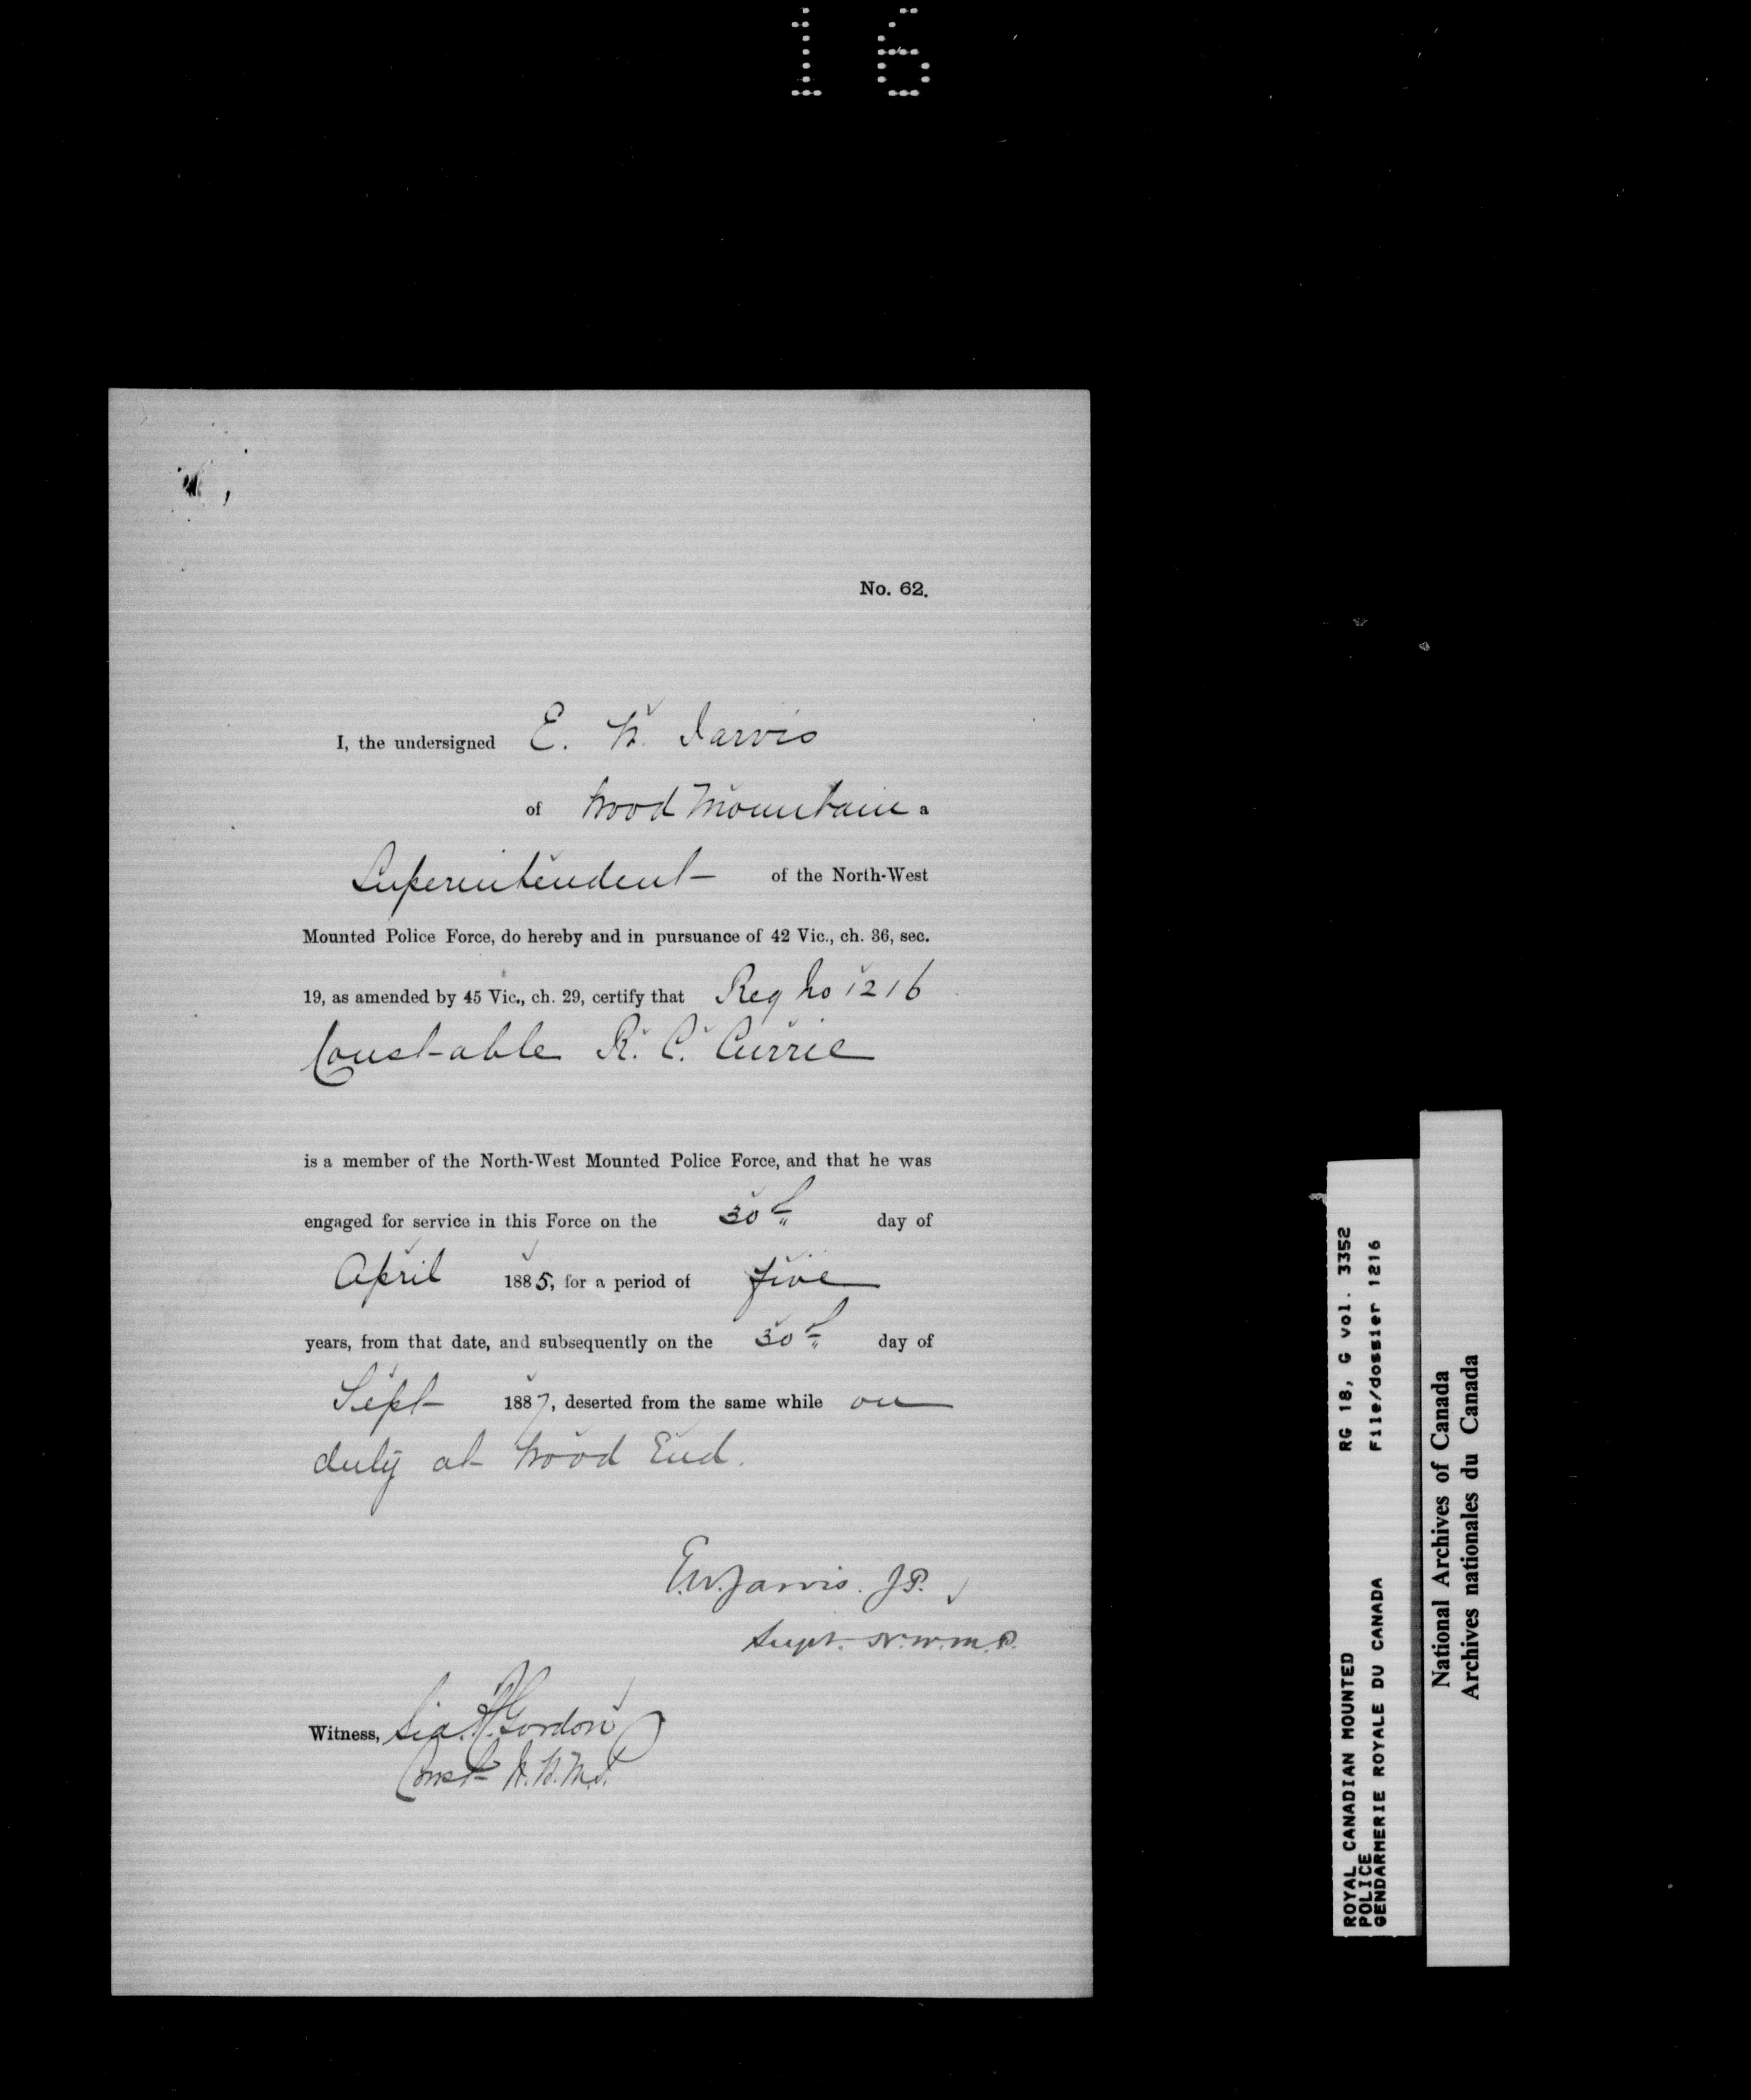 16
No. 62.
I, the undersigned E. W. Jarvis
of Wood Mountain a
Superintendent of the North-West
Mounted Police Force, do hereby and in pursuance of 42 Vic., ch. 36, sec.
19, as amended by 45 Vic., ch. 29, certify that Reg No 1216
Constable R. C. Currie
is a member of the North-West Mounted Police Force, and that he was
engaged for service in this Force on the 30th day of
April 1885, for a period of five
years, from that date, and subsequently on the 30th day of
Sept 1887, deserted from the same while on
duty at Wood End.
E.W. Jarvis. J.P.
Supt. N.W.M.P.
Witness, Gordon
Const N.W.M.P.
ROYAL CANADIAN MOUNTED RG 18, G vol. 3352
POLICE File/dossier 1216
GENDARMERIE ROYALE DU CANADA
National Archives of Canada
Archives nationales du Canada